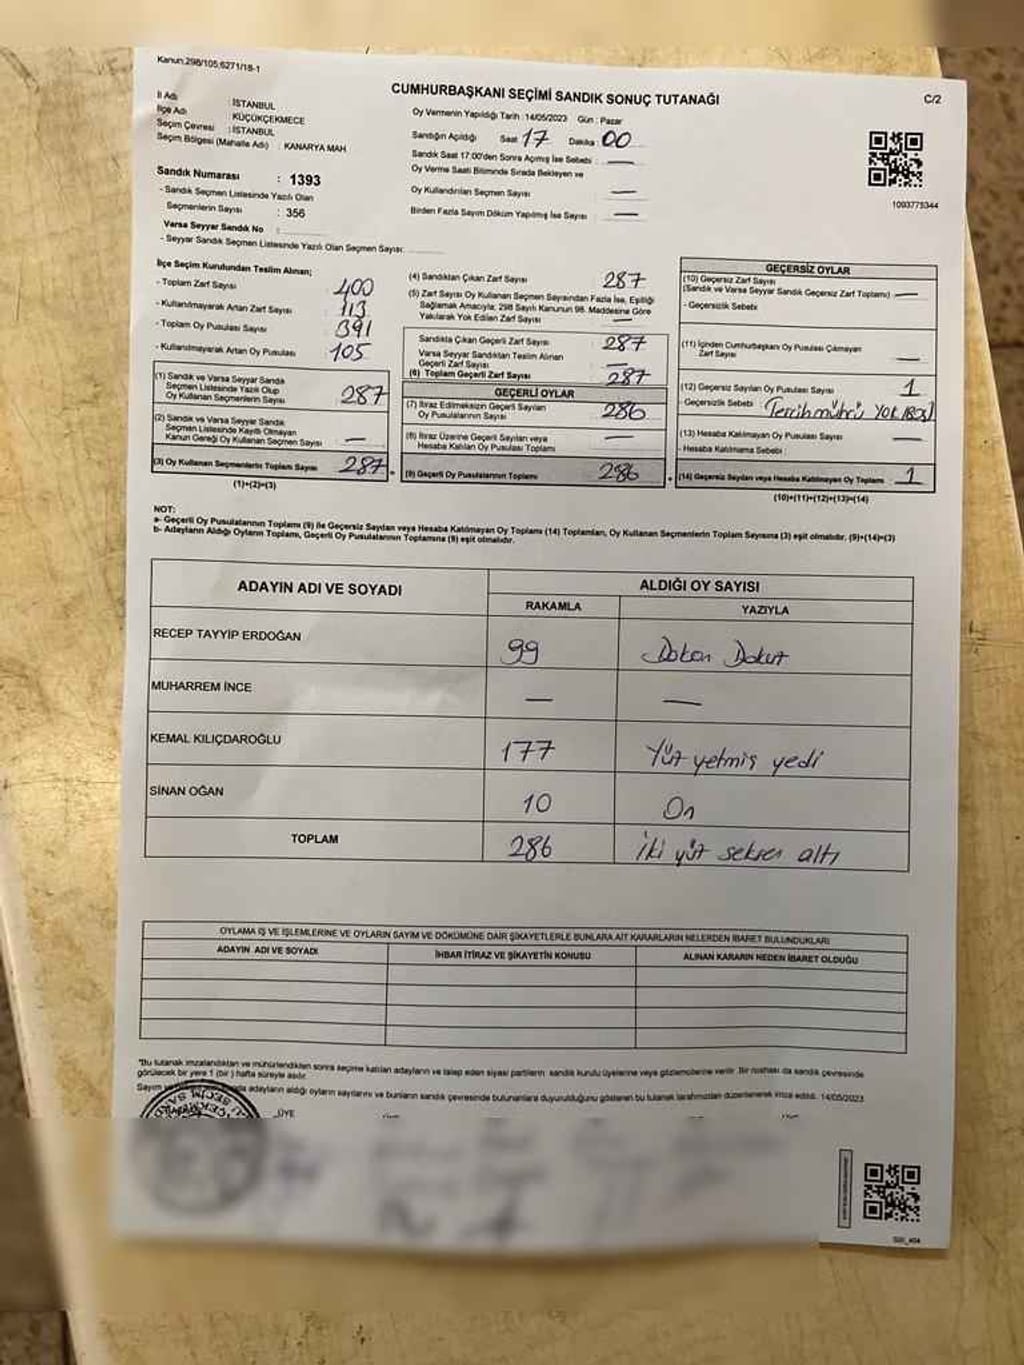 Kanun:298/105;6271/18-1
CUMHURBAŞKANI SEÇİMİ SANDIK SONUÇ TUTANAĞI
C/2
İl Adı : İSTANBUL
İlçe Adı : KÜÇÜKÇEKMECE
Seçim Çevresi : İSTANBUL
Seçim Bölgesi (Mahalle Adı) : KANARYA MAH
Sandık Numarası : 1393
- Sandık Seçmen Listesinde Yazılı Olan
Seçmenlerin Sayısı : 356
Varsa Seyyar Sandık No :
- Seyyar Sandık Seçmen Listesinde Yazılı Olan Seçmen Sayısı:
Oy Vermenin Yapıldığı Tarih : 14/05/2023 Gün : Pazar
Sandığın Açıldığı Saat 17 Dakika : 00
Sandık Saat 17:00'den Sonra Açmış İse Sebebi : —
Oy Verme Saati Bitiminde Sırada Bekleyen ve
Oy Kullandırılan Seçmen Sayısı : —
Birden Fazla Sayım Döküm Yapılmış İse Sayısı : —
1093775344
İlçe Seçim Kurulundan Teslim Alınan;
- Toplam Zarf Sayısı : 400
- Kullanılmayarak Artan Zarf Sayısı : 113
- Toplam Oy Pusulası Sayısı : 391
- Kullanılmayarak Artan Oy Pusulası : 105
(1) Sandık ve Varsa Seyyar Sandık
Seçmen Listesinde Yazılı Olup
Oy Kullanan Seçmenlerin Sayısı : 287
(2) Sandık ve Varsa Seyyar Sandık
Seçmen Listesinde Kayıtlı Olmayan
Kanun Gereği Oy Kullanan Seçmen Sayısı : —
(3) Oy Kullanan Seçmenlerin Toplam Sayısı : 287
(1)+(2)=(3)
(4) Sandıktan Çıkan Zarf Sayısı : 287
(5) Zarf Sayısı Oy Kullanan Seçmen Sayısından Fazla İse, Eşitliği
Sağlamak Amacıyla; 298 Sayılı Kanunun 98. Maddesine Göre
Yakılarak Yok Edilen Zarf Sayısı : —
Sandıkta Çıkan Geçerli Zarf Sayısı : 287
Varsa Seyyar Sandıktan Teslim Alınan
Geçerli Zarf Sayısı : —
(6) Toplam Geçerli Zarf Sayısı : 287
GEÇERLİ OYLAR
(7) İtiraz Edilmeksizin Geçerli Sayılan
Oy Pusulalarının Sayısı : 286
(8) İtiraz Üzerine Geçerli Sayılan veya
Hesaba Katılan Oy Pusulası Toplamı : —
(9) Geçerli Oy Pusulalarının Toplamı : 286
GEÇERSİZ OYLAR
(10) Geçersiz Zarf Sayısı
(Sandık ve Varsa Seyyar Sandık Geçersiz Zarf Toplamı) : —
- Geçersizlik Sebebi :
(11) İçinden Cumhurbaşkanı Oy Pusulası Çıkmayan
Zarf Sayısı : —
(12) Geçersiz Sayılan Oy Pusulası Sayısı : 1
- Geçersizlik Sebebi : Tercih mührü YOK (BOŞ)
(13) Hesaba Katılmayan Oy Pusulası Sayısı : —
- Hesaba Katılmama Sebebi :
(14) Geçersiz Sayılan veya Hesaba Katılmayan Oy Toplamı : 1
(10)+(11)+(12)+(13)=(14)
NOT:
a- Geçerli Oy Pusulalarının Toplamı (9) ile Geçersiz Sayılan veya Hesaba Katılmayan Oy Toplamı (14) Toplamları, Oy Kullanan Seçmenlerin Toplam Sayısına (3) eşit olmalıdır. (9)+(14)=(3)
b- Adayların Aldığı Oyların Toplamı, Geçerli Oy Pusulalarının Toplamına (9) eşit olmalıdır.
ADAYIN ADI VE SOYADI ALDIĞI OY SAYISI
RAKAMLA YAZIYLA
RECEP TAYYİP ERDOĞAN 99 Doksan Dokuz
MUHARREM İNCE — —
KEMAL KILIÇDAROĞLU 177 Yüz yetmiş yedi
SİNAN OĞAN 10 On
TOPLAM 286 İki yüz seksen altı
OYLAMA İŞ VE İŞLEMLERİNE VE OYLARIN SAYIM VE DÖKÜMÜNE DAİR ŞİKAYETLERLE BUNLARA AİT KARARLARIN NELERDEN İBARET BULUNDUKLARI
ADAYIN ADI VE SOYADI İHBAR İTİRAZ VE ŞİKAYETİN KONUSU ALINAN KARARIN NEDEN İBARET OLDUĞU
*Bu tutanak imzalandıktan ve mühürlendikten sonra seçime katılan adayların ve talep eden siyasi partilerin sandık kurulu üyelerine veya gözlemcilerine verilir. Bir nüshası da sandık çevresinde
görülecek bir yere 1 (bir) hafta süreyle asılır.
Sayım adayların aldığı oyların sayılarını ve bunların sandık çevresinde bulunanlara duyurulduğunu gösteren bu tutanak tarafımızdan düzenlenerek imza edildi. 14/05/2023
ÜYE